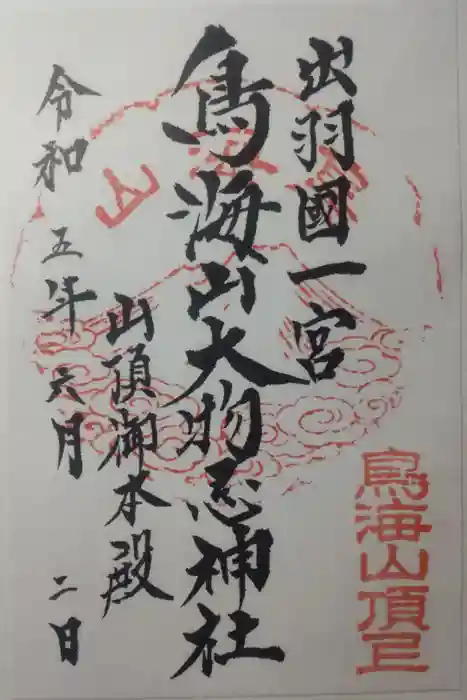 出羽國一宮
鳥海山大物忌神社
山頂御本殿
令和五年六月二日
鳥海山
鳥海山頂上